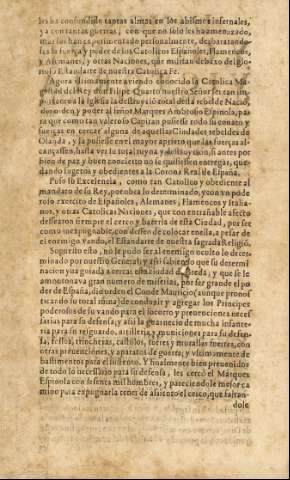 les ha confundido tantas almas en los abismos infernales,
ya con tantas guerras, con que no solo les ha amenazado,
mas los han
sus la fuerça y poder de los Catolicos Españoles, Flamencos,
y Alemanes, y otras Naciones, que militan debaxo del glorioso
Estandarte de nuestra Catolica Fe.
Agora vltimamente viendo conocido la Catolica Magestad
del gran Rey don Felipe Quarto nuestro Señor ser tan importante
a la Iglesia la destruycion total desta rebelde Nacion,
dio orden, y poder al señor Marques Ambrosio Espinola, para
que como tan valeroso Capitan pusiesse todo su conato, y
fuerças en cercar alguna de aquellas Ciudades rebeldes de
Olanda, y la pusiesse en el mayor aprieto que las fuerças alcançassen,
hasta ver la total ruyna, y destruycion, si antes por
bien de paz y buen concierto no se quisiessen entregar, quedando
sugetos y obedientes a la Corona Real de España.
Puso su Excelencia, como tan Catolico y obediente al
mandato de su Rey, por obra lo determinado, y con vn poderoso
exercito de Españoles, Alemanes, Flamencos y Italianos,
y otras Catolicas Naciones, que con entrañable afecto
dessearon siempre el cerco, y bateria de esta Ciudad, por ser
como inexpugnable, con desseo de colocar en ella, a pesar de
el enemigo vando, el Estandarte de nuestra sagrada Religiõ.
Supuesto esto, no le pudo ser al enemigo oculto lo determinado
por nuestro General, y assi sabiendo que su determinacion
yua guiada a cercar esta ciudad de Breda, y que se le
amontonaua gran numero de miserias, por ser grande el poder
de España, dio orden el Conde Mauricio (aunque pronosticando
su total ruina) de conduzir y agregar los Principes
poderosos de su vando para el socorro y preuenciones necessarias
para su defensa, y assi la guarneció de mucha infanteria
para su resguardo, artilleria, y municiones para su defensa,
fossos, trincheras, castillos, torres y murallas fuertes, con
otras preuenciones, y aparatos de guerra, y vltimamente de
bastimentos para el sustento. Y finalmente bien preuenidos
de todo lo necessario para su defensa, les cercó el Marques
Espinola con sesenta mil hombres, y pareciendole mejor camino
para expugnarla tener de assiento el cerco, que faltandole